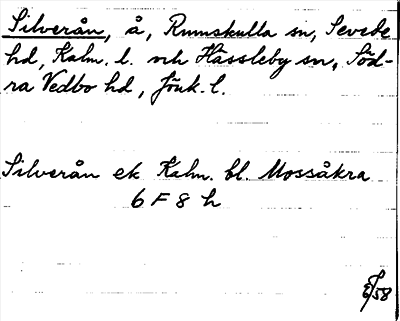 Silverån, å, Rumskulla sn, Sevede
hd, Kalm. l. och Hässleby sn, Söd-
ra Vedbo hd, Jönk. l.
Silverån ek Kalm. bl. Mossåkra
6 F 8 h
/58